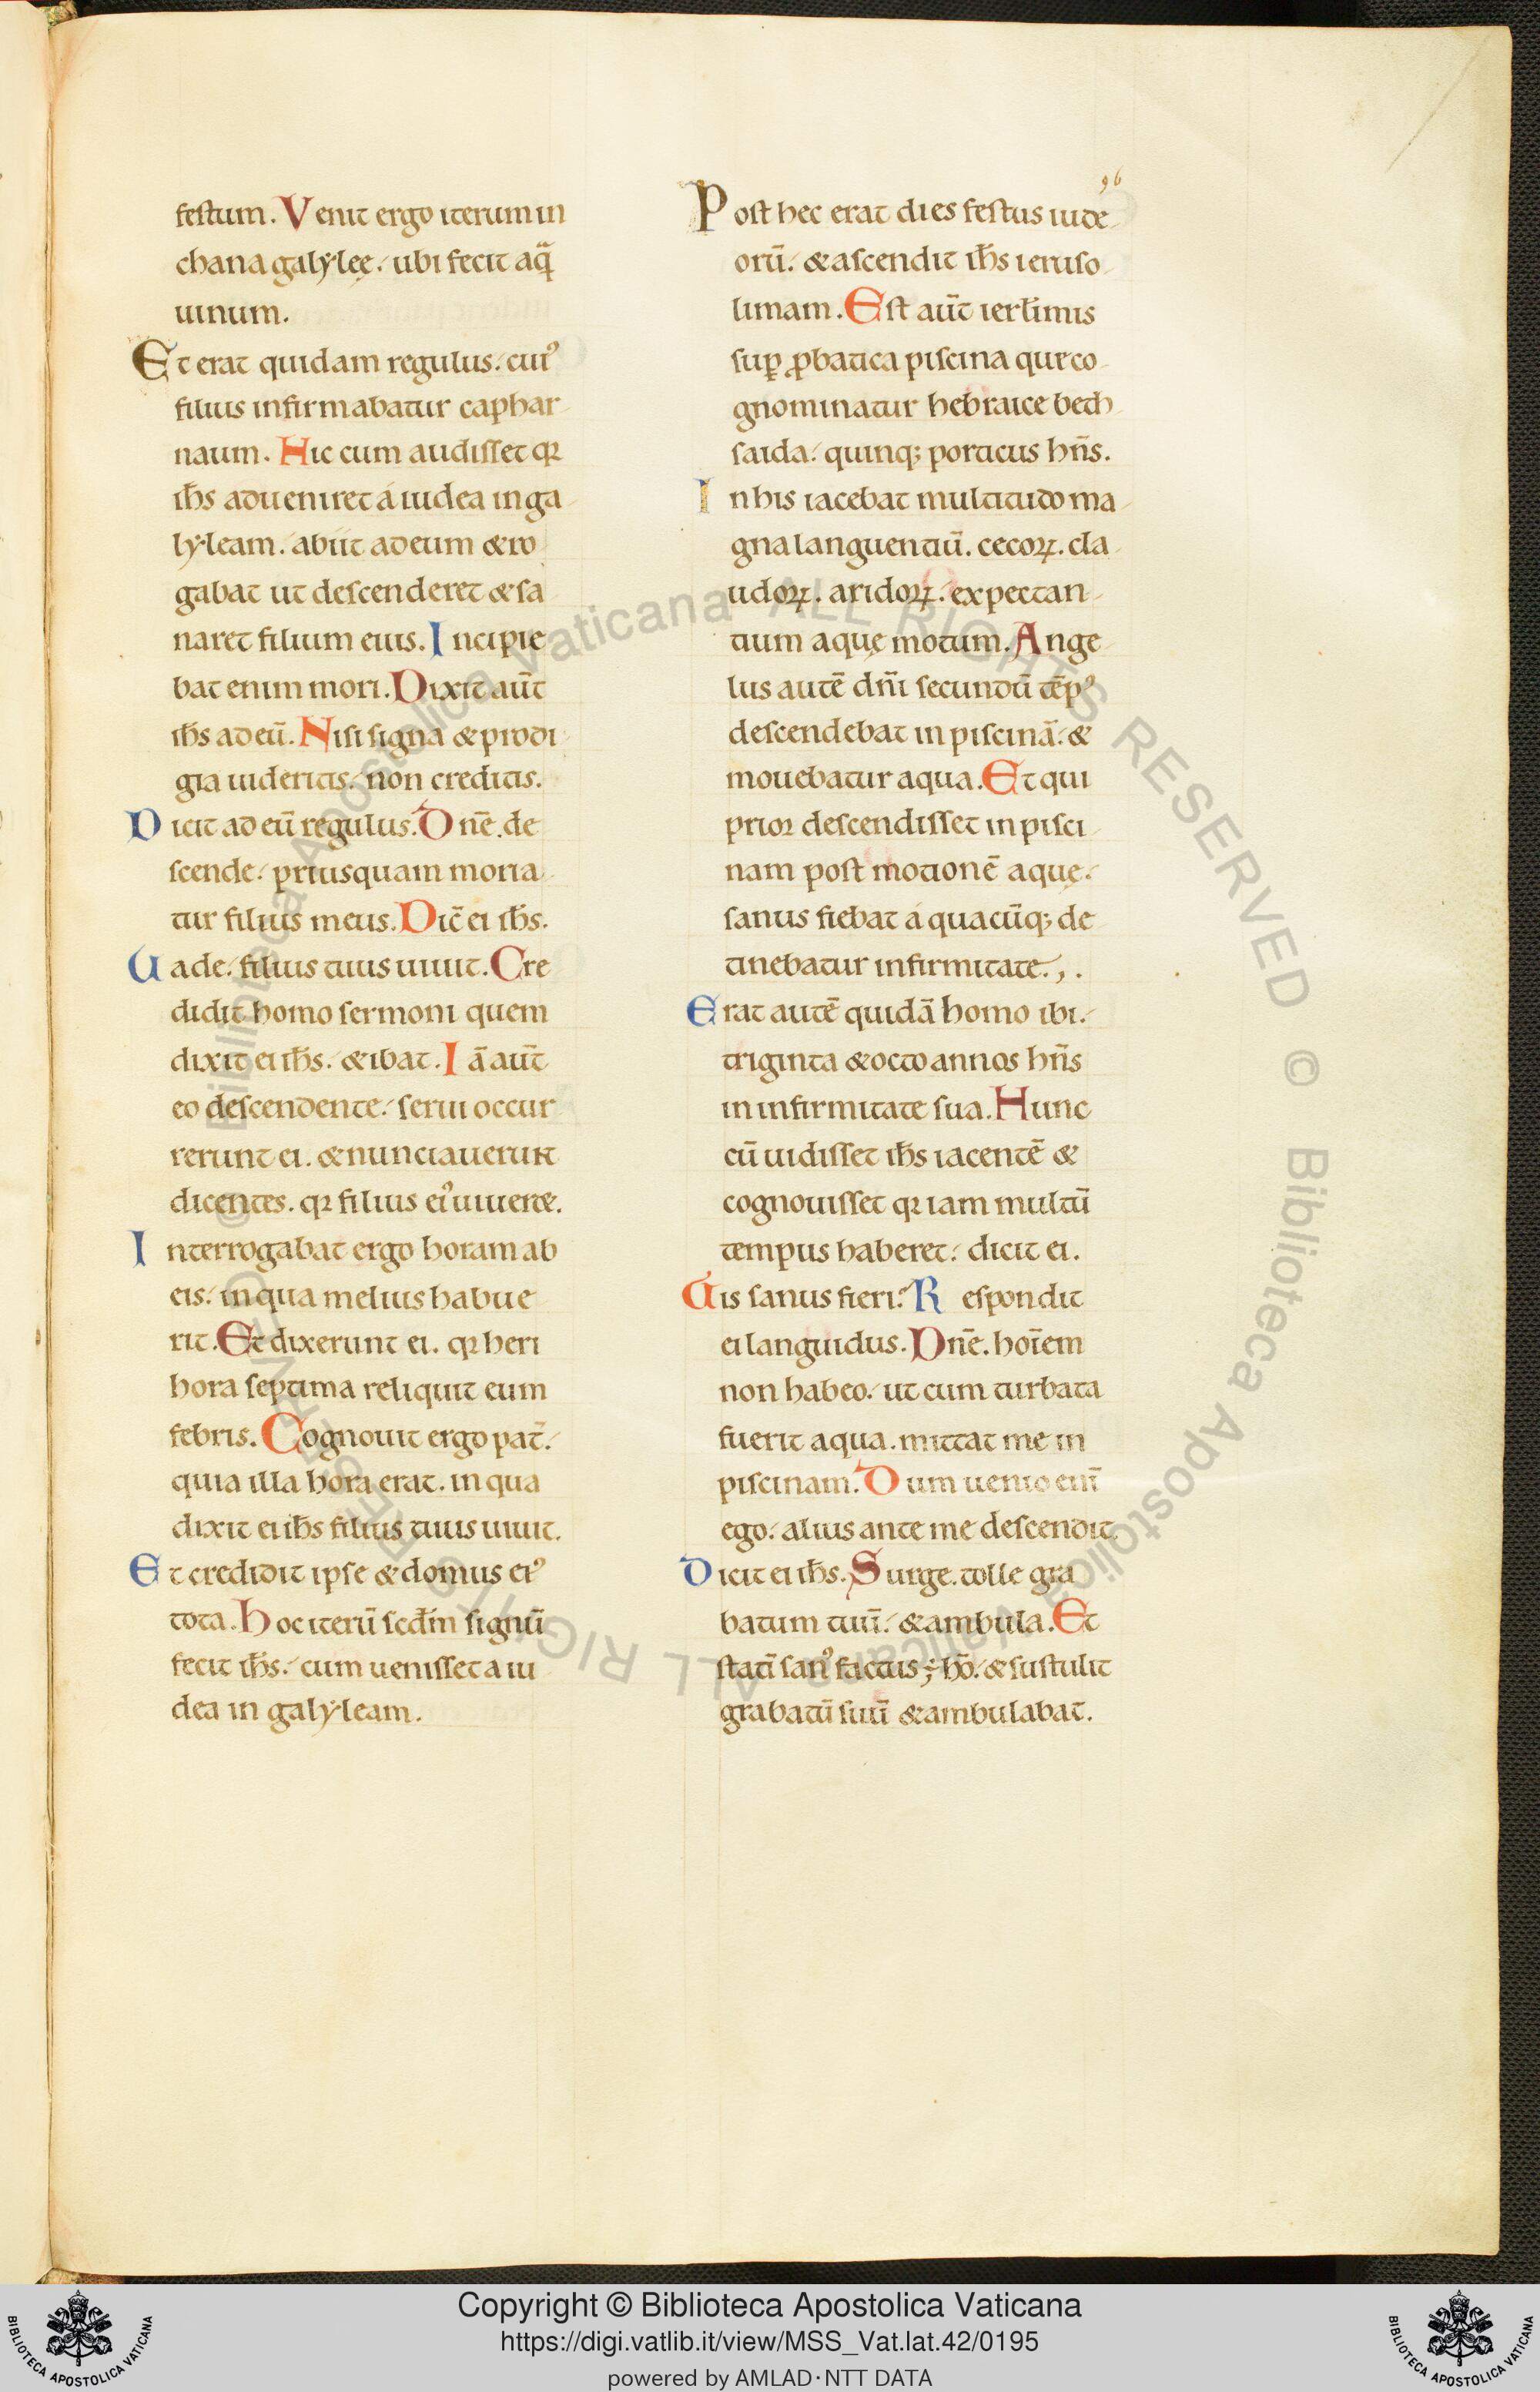 96
festum. Venit ergo iterum in
chana galẏleę. ubi fecit aq̄
uinum.
Et erat quidam regulus. cui᾽
filius infirmabatur caphar
naum. Hic cum audisset qꝛ
ih̅s adueniret á iudea in ga
lẏleam. abiit ad eum & ro
gabat ut descenderet & sa
naret filium eius. Incipie
bat enim mori. Dixit aut̄
ih̅s ad eū. Nisi signa & prodi
gia uideritis. non creditis.
Dicit ad eū regulus. Dn̄e. de
scende. priusquam moria
tur filius meus. Dic̄ ei ih̅s.
Uade. filius tuus uiuit. Cre
didit homo sermoni quem
dixit ei ih̅s. & ibat. Iā aut̄
eo descendente. serui occur
rerunt ei. & nunciauerunt
dicentes. qꝛ filius ei᾽ uiueret.
Interrogabat ergo horam ab
eis. in qua melius habue
rit. Et dixerunt ei. qꝛ heri
hora septima reliquit eum
febris. Cognouit ergo pat̄.
quia illa hora erat. in qua
dixit ei ih̅s filius tuus uiuit.
Et credidit ipse & domus ei᾽
tota. Hoc iterū scd̅m signū
fecit ih̅s. cum uenisset a iu
dea in galẏleam.
Post hec erat dies festus iude
orū. & ascendit ih̅s ieruso
limam. Est aut̄ ierl̅imis
suꝑ ꝓbatica piscina que co
gnominatur hebraice beth
saida. quinq; porticus hn̄s.
In his iacebat multitudo ma
gna languentiū. cecoꝝ. cla
udoꝝ. aridoꝝ. expectan
tium aquę motum. Ange
lus autē dn̄i secundū tēp᾽
descendebat in piscinā. &
mouebatur aqua. Et qui
prior descendisset in pisci
nam post motionē aquę.
sanus fiebat á quacūq; de
tinebatur infirmitate.,.
Erat autē quidā homo ibi.
triginta & octo annos hn̄s
in infirmitate sua. Hunc
cū uidisset ih̅s iacentē &
cognouisset qꝛ iam multū
tempus haberet. dicit ei.
Uis sanus fieri? Respondit
ei languidus. Dn̄e. hoīem
non habeo. ut cum turbata
fuerit aqua. mittat me in
piscinam. Dum uenio enī
ego. alius ante me descendit.
Dicit ei ih̅s. Surge. tolle gra
batum tuū. & ambula. Et
statī san᾽ factus ÷ hō. & sustulit
grabatū suū & ambulabat.
© Biblioteca Apostolica Vaticana ALL RIGHTS RESERVED © Biblioteca Apostolica Vaticana ALL RIGHTS RESERVED
BIBLIOTECA APOSTOLICA VATICANA
Copyright © Biblioteca Apostolica Vaticana
https://digi.vatlib.it/view/MSS_Vat.lat.42/0195
powered by AMLAD·NTT DATA
BIBLIOTECA APOSTOLICA VATICANA